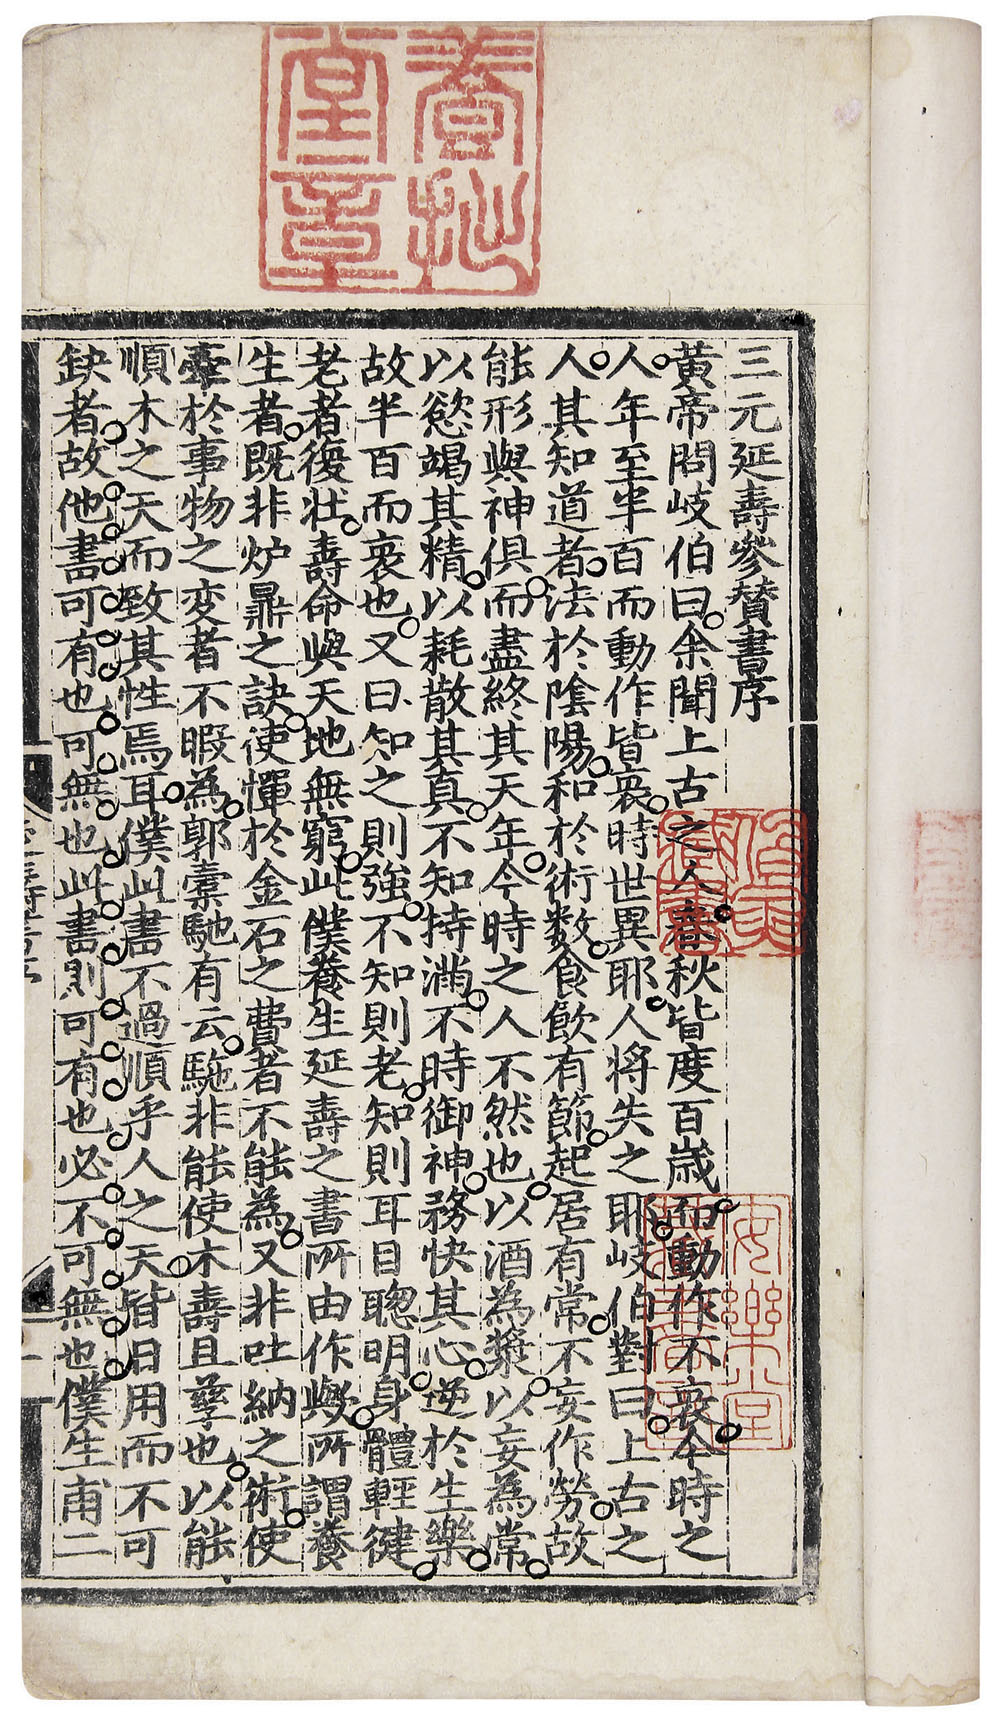 三元延壽參贊書序
黃帝問岐伯曰余聞上古之人春秋皆度百歲而動作不衰今時之
人年至半百而動作皆衰時世異耶人將失之耶岐伯對曰上古之
人其知道者法於陰陽和於術数食飲有節起居有常不妄作勞故
能形與神俱而盡終其天年今時之人不然也以酒為漿以妄為常
以慾竭其精以耗散其真不知持滿不時御神務快其心逆於生樂
故半百而衰也又曰知之則強不知則老知則耳目聰明身體輕健
老者復壯壽命與天地無窮此僕養生延壽之書所由作與所謂養
生者既非炉鼎之訣使憚於金石之費者不能為又非吐納之術使
牽於事物之变者不暇為郭橐馳有云馳非能使木壽且孳也以能
順木之天而致其性焉耳僕此書不過順乎人之天皆日用而不可
缺者故他書可有也可無也此書則可有也必不可無也僕生甫二
養拙堂章
安樂堂